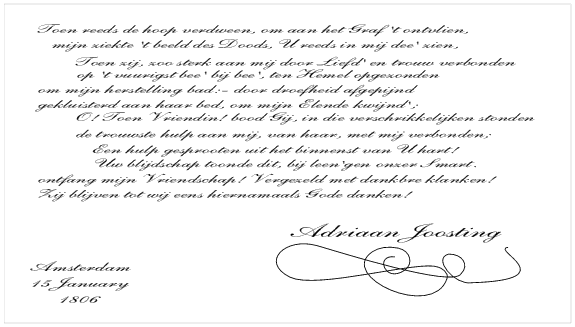 Toen reeds de hoop verdween, om aan het Graf 't ontvlien,
mijn ziekte 't beeld des Doods, U reeds in mij dee' zien,
Toen zij, zoo sterk aan mij door Liefd' en trouw verbonden
op 't vuurigst bee' bij bee', ten Hemel opgezonden
om mijn herstelling bad:- door droefheid afgepijnd
gekluisterd aan haar bed, om mijn Elende kwijnd';
O! Toen Vriendin! bood Gij, in die verschrikkelijken stonden
de trouwste hulp aan mij, van haar, met mij verbonden;
Een hulp gesprooten uit het binnenst van U hart!
Uw blijdschap toonde dit, bij leen'gen onzer Smart.
ontfang mijn Vriendschap! Vergezeld met dankbre klanken!
Zij blijven tot wij eens hiernamaals Gode danken!
Adriaan Joosting
Amsterdam
15 January
1806